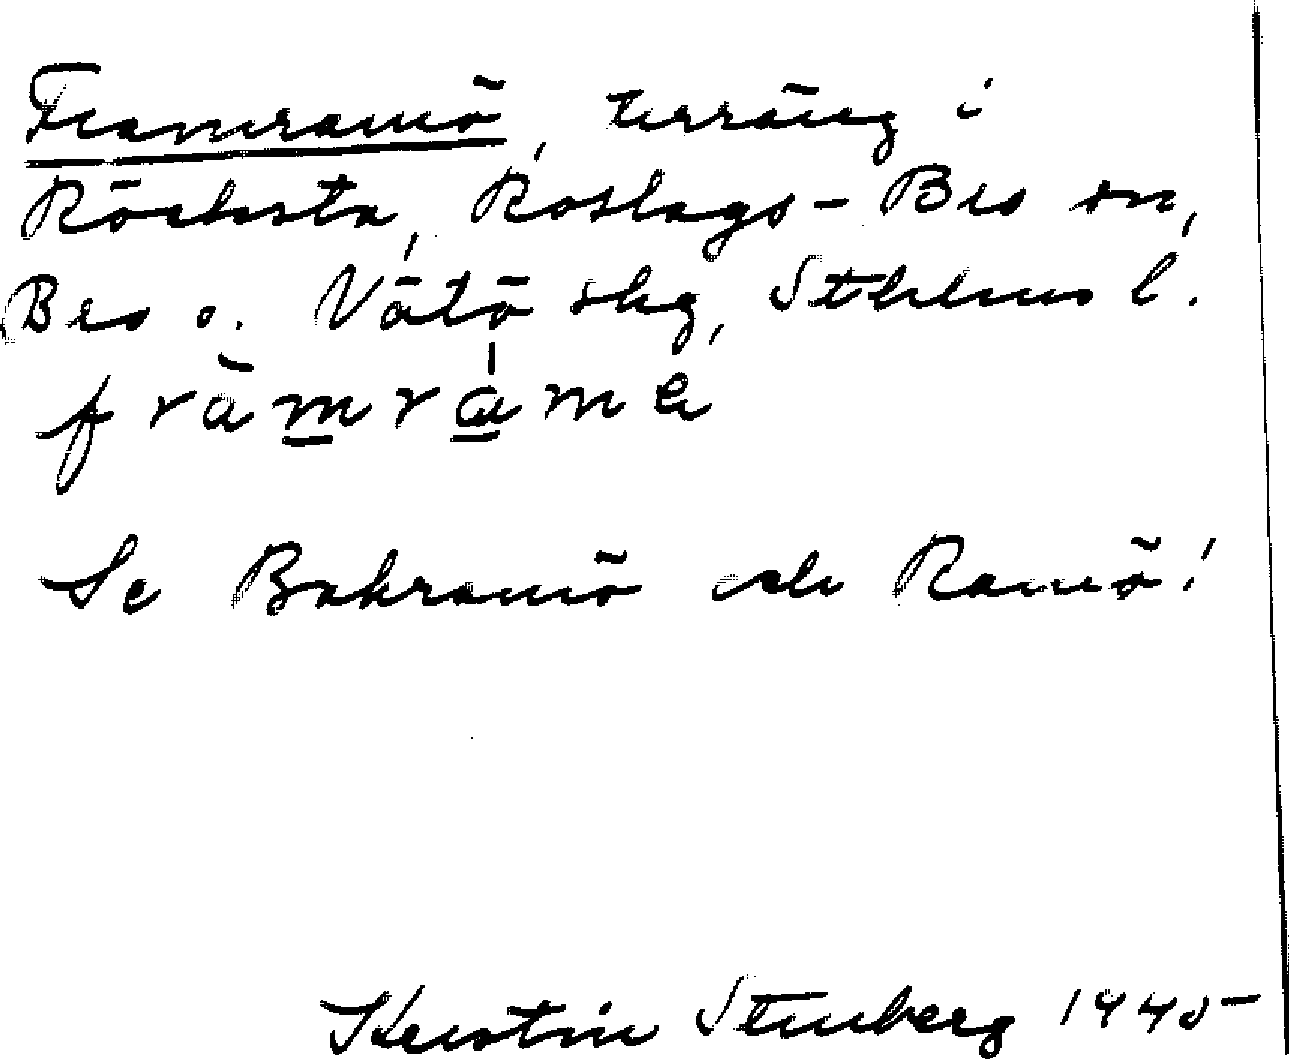 Framramö, terräng i
Röcksta, Roslags-Bro sn,
Bro o. Vätö skg, Sthlms l.
framramε
Se Bakramö och Ramö!
Kerstin Stenberg 1945